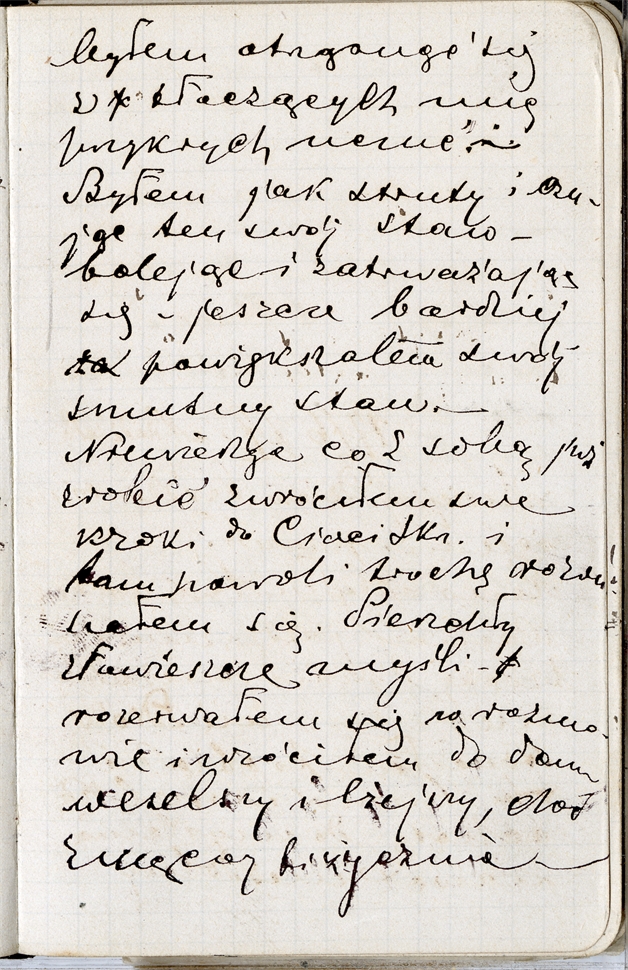 byłem otrząnąć się
z tłoczących mię
przykrych uczuć. –
Byłem jak struty i czu-
jąc ten swój stan –
bolejąc i zatrważając
się – jeszcze bardziej
powiększałem swój
smutny stan. –
Niewiedząc co z sobą już
zrobić zwróciłem swe
kroki do Cioci Skr. i
tam powoli trochę rozer-
wałem się. Pierzchły
złowieszcze myśli –
rozerwałem się w rozmo-
wie i wróciłem do domu
weselszy i lżejszy, choć
zmęczony fizycznie –